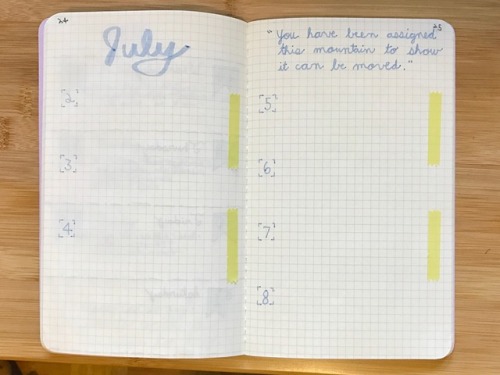 24
July
2
3
4
25
"You have been assigned
this mountain to show
it can be moved."
5
6
7
8